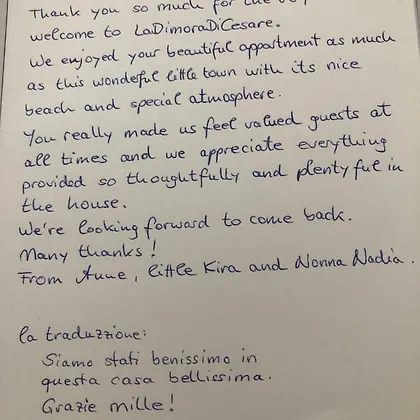 Thank you so much for the
welcome to LaDimoraDiCesare.
We enjoyed your beautiful appartment as much
as this wondeful little town with its nice
beach and special atmosphere.
You really made us feel valued guests at
all times and we appreciate everything
provided so thoughtfully and plentyful in
the house.
We're looking forward to come back.
Many thanks!
From Anne, little Kira and Nonna Nadia.
la traduzzione:
Siamo stati benissimo in
questa casa bellissima.
Grazie mille!